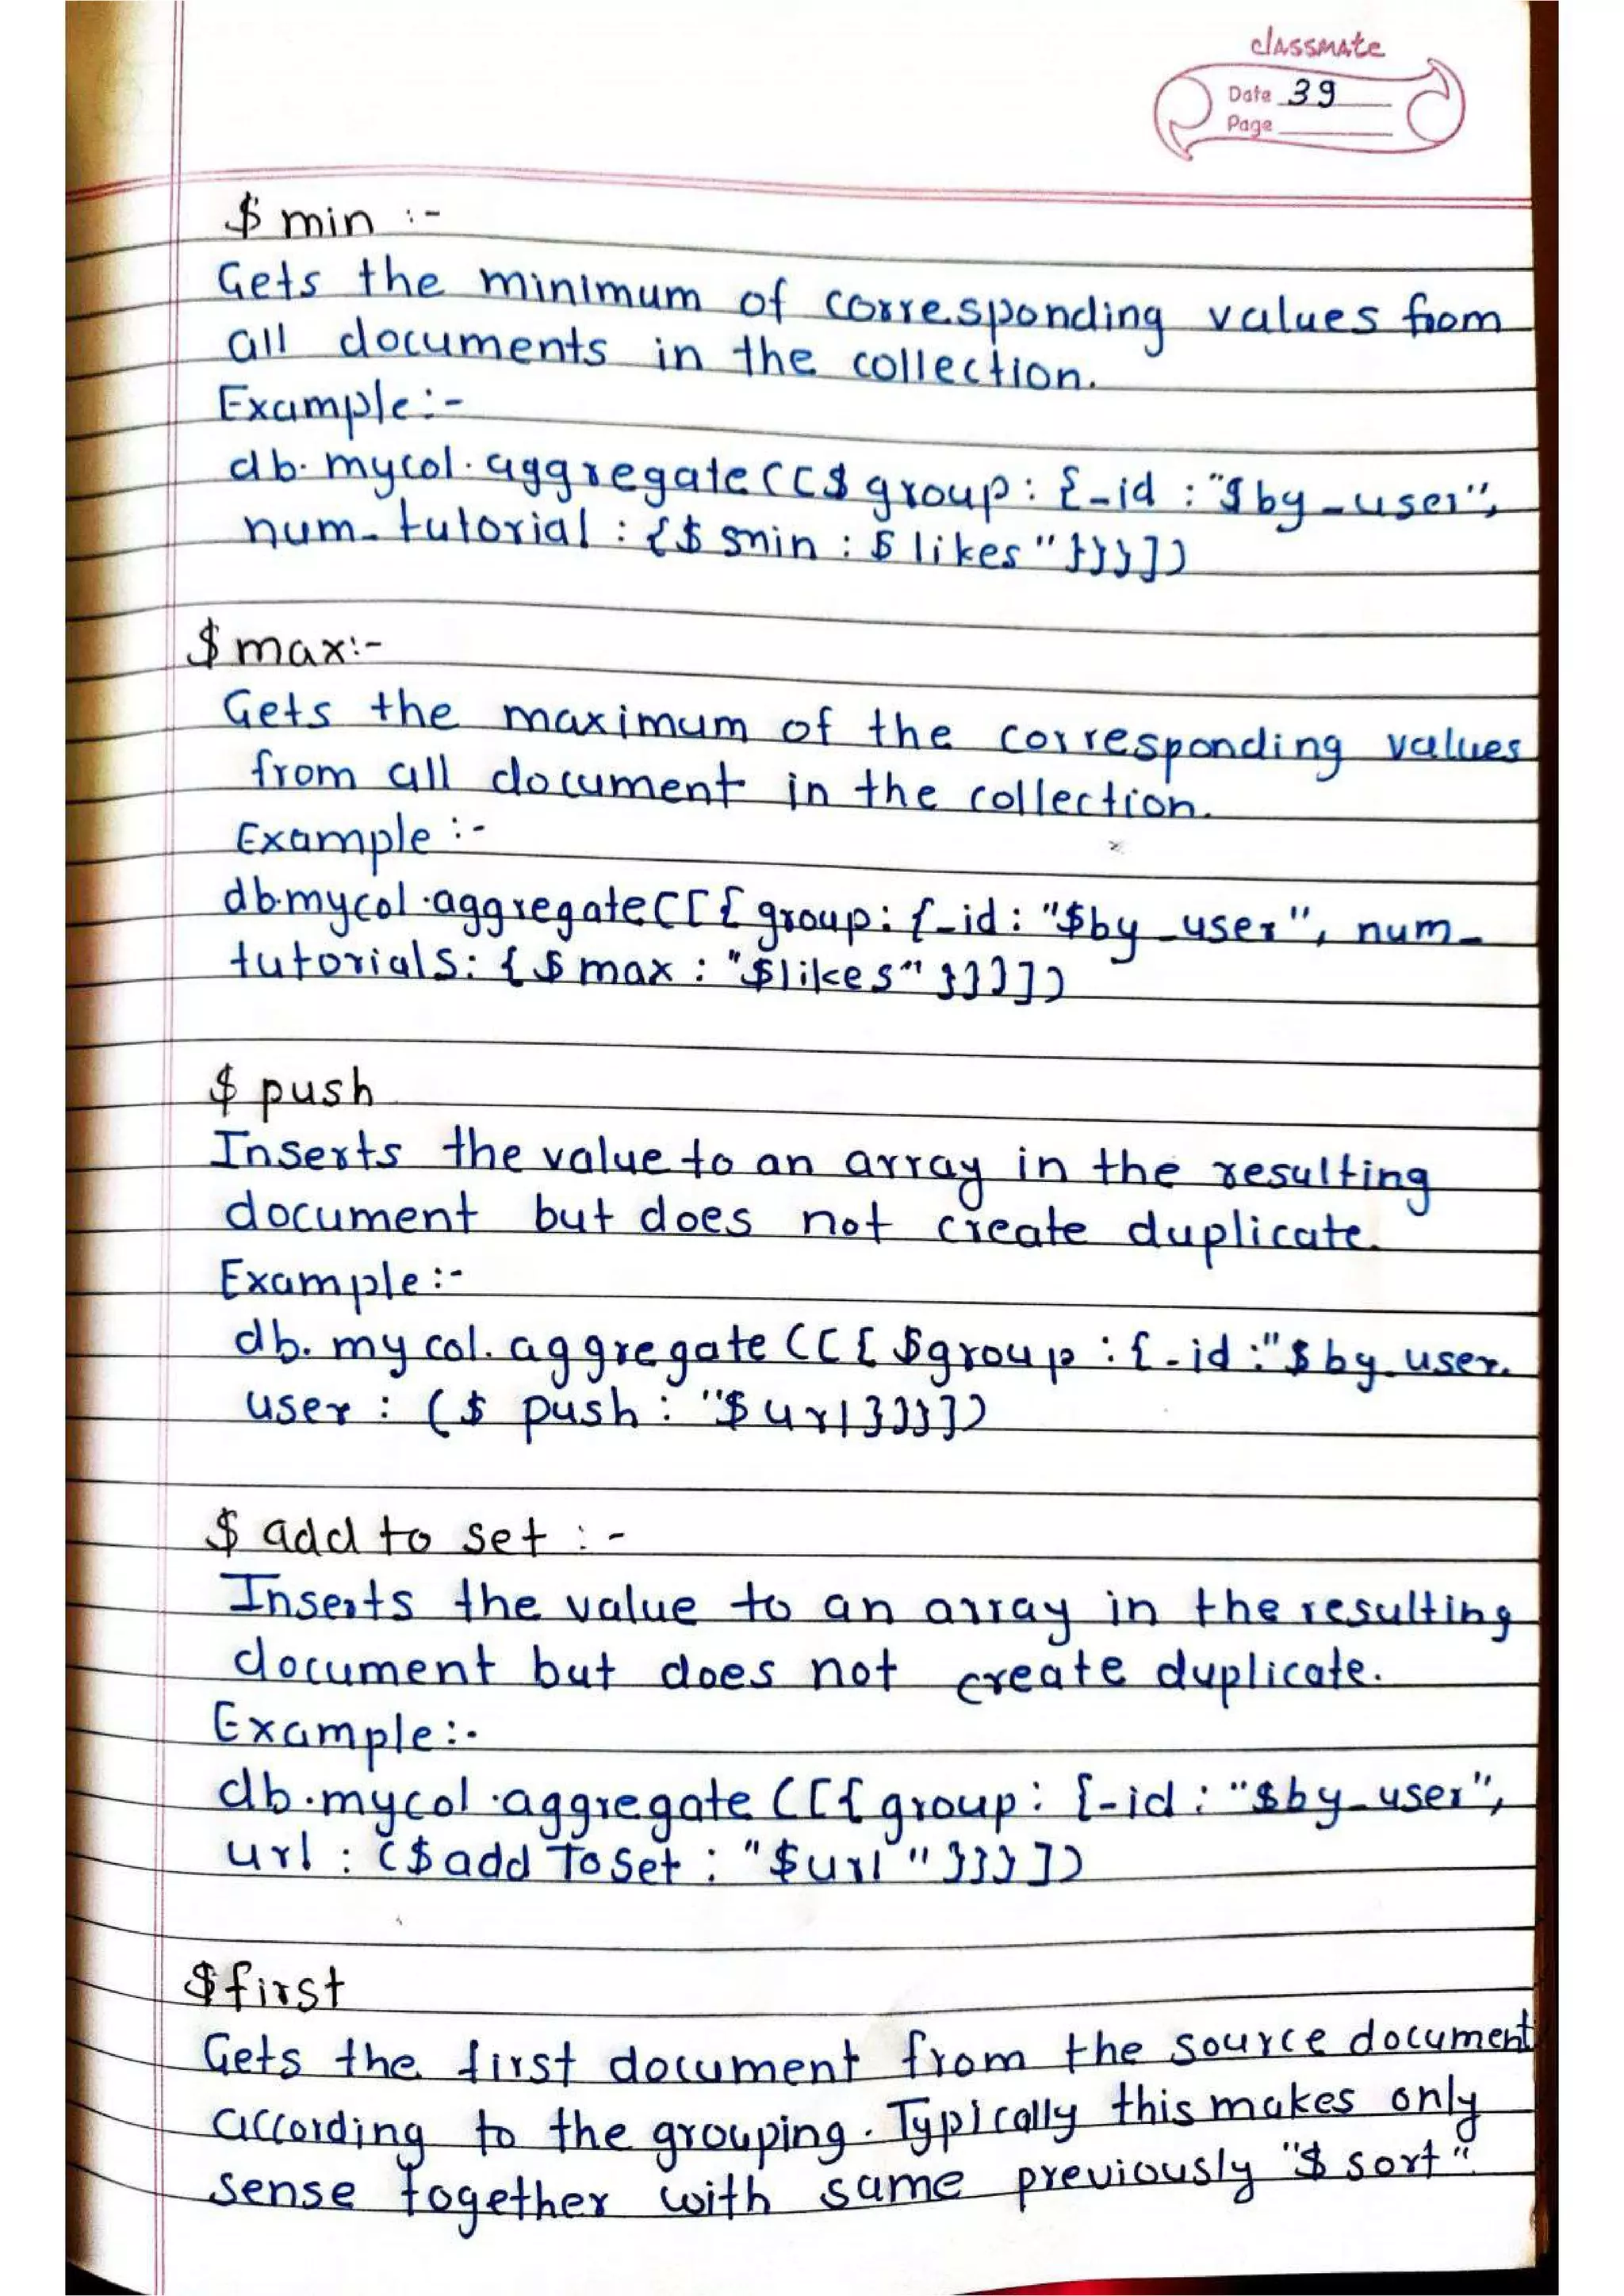 classmate
Date 39
Page
$ min :-
Gets the minimum of corresponding values from
all documents in the collection.
Example:-
db.mycol.aggregate([$group:{_id:"$by_user",
num_tutorial:{$min:$likes"}}}])
$max:-
Gets the maximum of the corresponding values
from all document in the collection.
Example :-
db.mycol.aggregate([{group:{_id:"$by_user", num_
tutorials:{$max:"$likes"}}}])
$ push
Inserts the value to an array in the resulting
document but does not create duplicate.
Example:-
db.mycol.aggregate([{$group:{_id:"$by_user.
user : ($ push : "$url}}}])
$ add to set :-
Inserts the value to an array in the resulting
document but does not create duplicate.
Example:-
db.mycol.aggregate([{group:{_id:"$by_user",
url : ($addToSet : "$url"}}}])
$first
Gets the first document from the source document
according to the grouping. Typically this makes only
sense together with same previously "$sort".